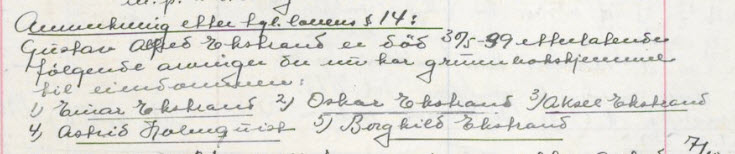 Anmerkning efter tgl. lovens § 14:
Gustav Alfred Ekstrand er död 30/5-39 etterlatende
følgende arvinger som nu har grunnbokshjemmel
til eiendommen:
1) Einar Ekstrand 2) Oskar Ekstrand 3) Aksel Ekstrand
4) Astrid Holmquist 5) Borghild Ekstrand